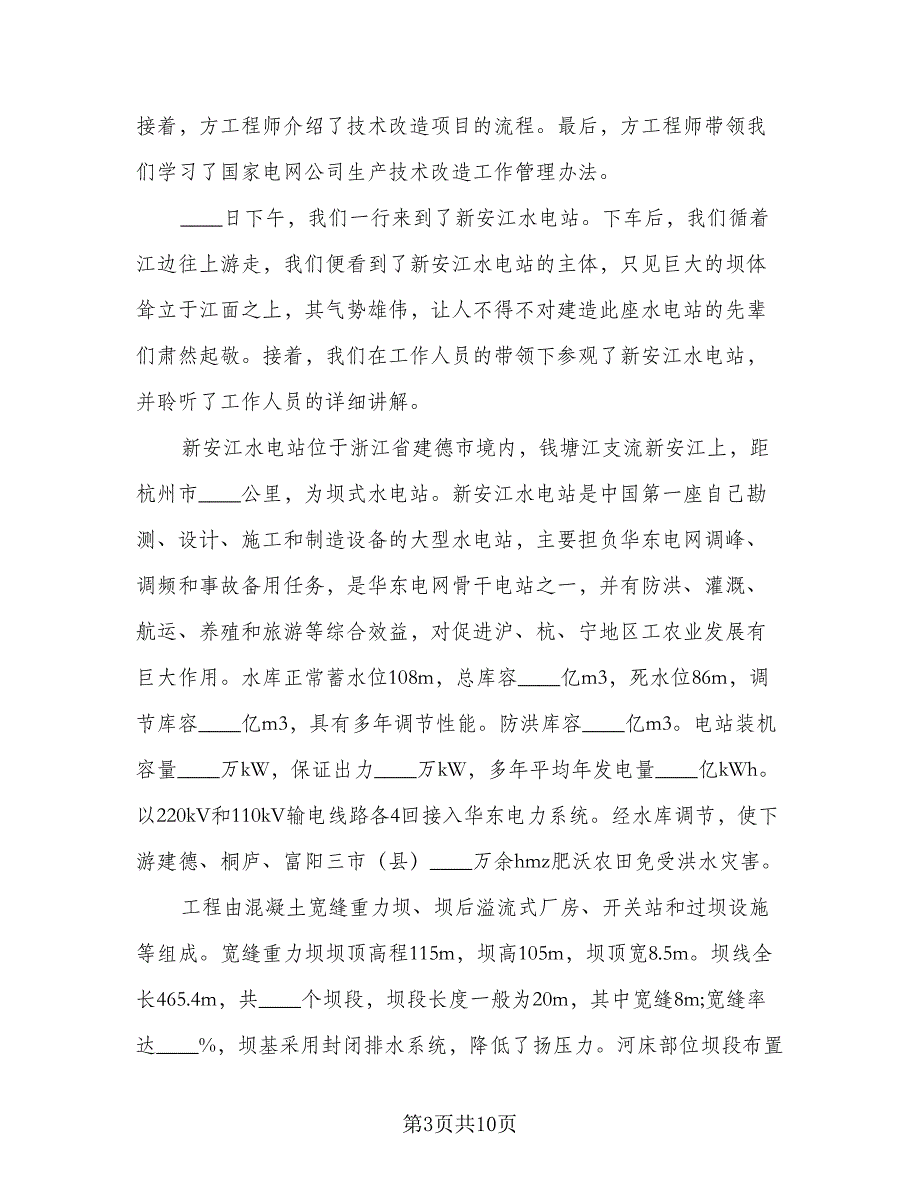 接着，方工程师介绍了技术改造项目的流程。最后，方工程师带领我
们学习了国家电网公司生产技术改造工作管理办法。
____日下午，我们一行来到了新安江水电站。下车后，我们循着
江边往上游走，我们便看到了新安江水电站的主体，只见巨大的坝体
耸立于江面之上，其气势雄伟，让人不得不对建造此座水电站的先辈
们肃然起敬。接着，我们在工作人员的带领下参观了新安江水电站，
并聆听了工作人员的详细讲解。
新安江水电站位于浙江省建德市境内，钱塘江支流新安江上，距
杭州市____公里，为坝式水电站。新安江水电站是中国第一座自己勘
测、设计、施工和制造设备的大型水电站，主要担负华东电网调峰、
调频和事故备用任务，是华东电网骨干电站之一，并有防洪、灌溉、
航运、养殖和旅游等综合效益，对促进沪、杭、宁地区工农业发展有
巨大作用。水库正常蓄水位108m，总库容____亿m3，死水位86m，调
节库容____亿m3，具有多年调节性能。防洪库容____亿m3。电站装机
容量____万kW，保证出力____万kW，多年平均年发电量____亿kWh。
以220kV和110kV输电线路各4回接入华东电力系统。经水库调节，使下
游建德、桐庐、富阳三市（县）____万余hmz肥沃农田免受洪水灾害。
工程由混凝土宽缝重力坝、坝后溢流式厂房、开关站和过坝设施
等组成。宽缝重力坝坝顶高程115m，坝高105m，坝顶宽8.5m。坝线全
长465.4m，共____个坝段，坝段长度一般为20m，其中宽缝8m;宽缝率
达____%，坝基采用封闭排水系统，降低了扬压力。河床部位坝段布置
第3页共10页